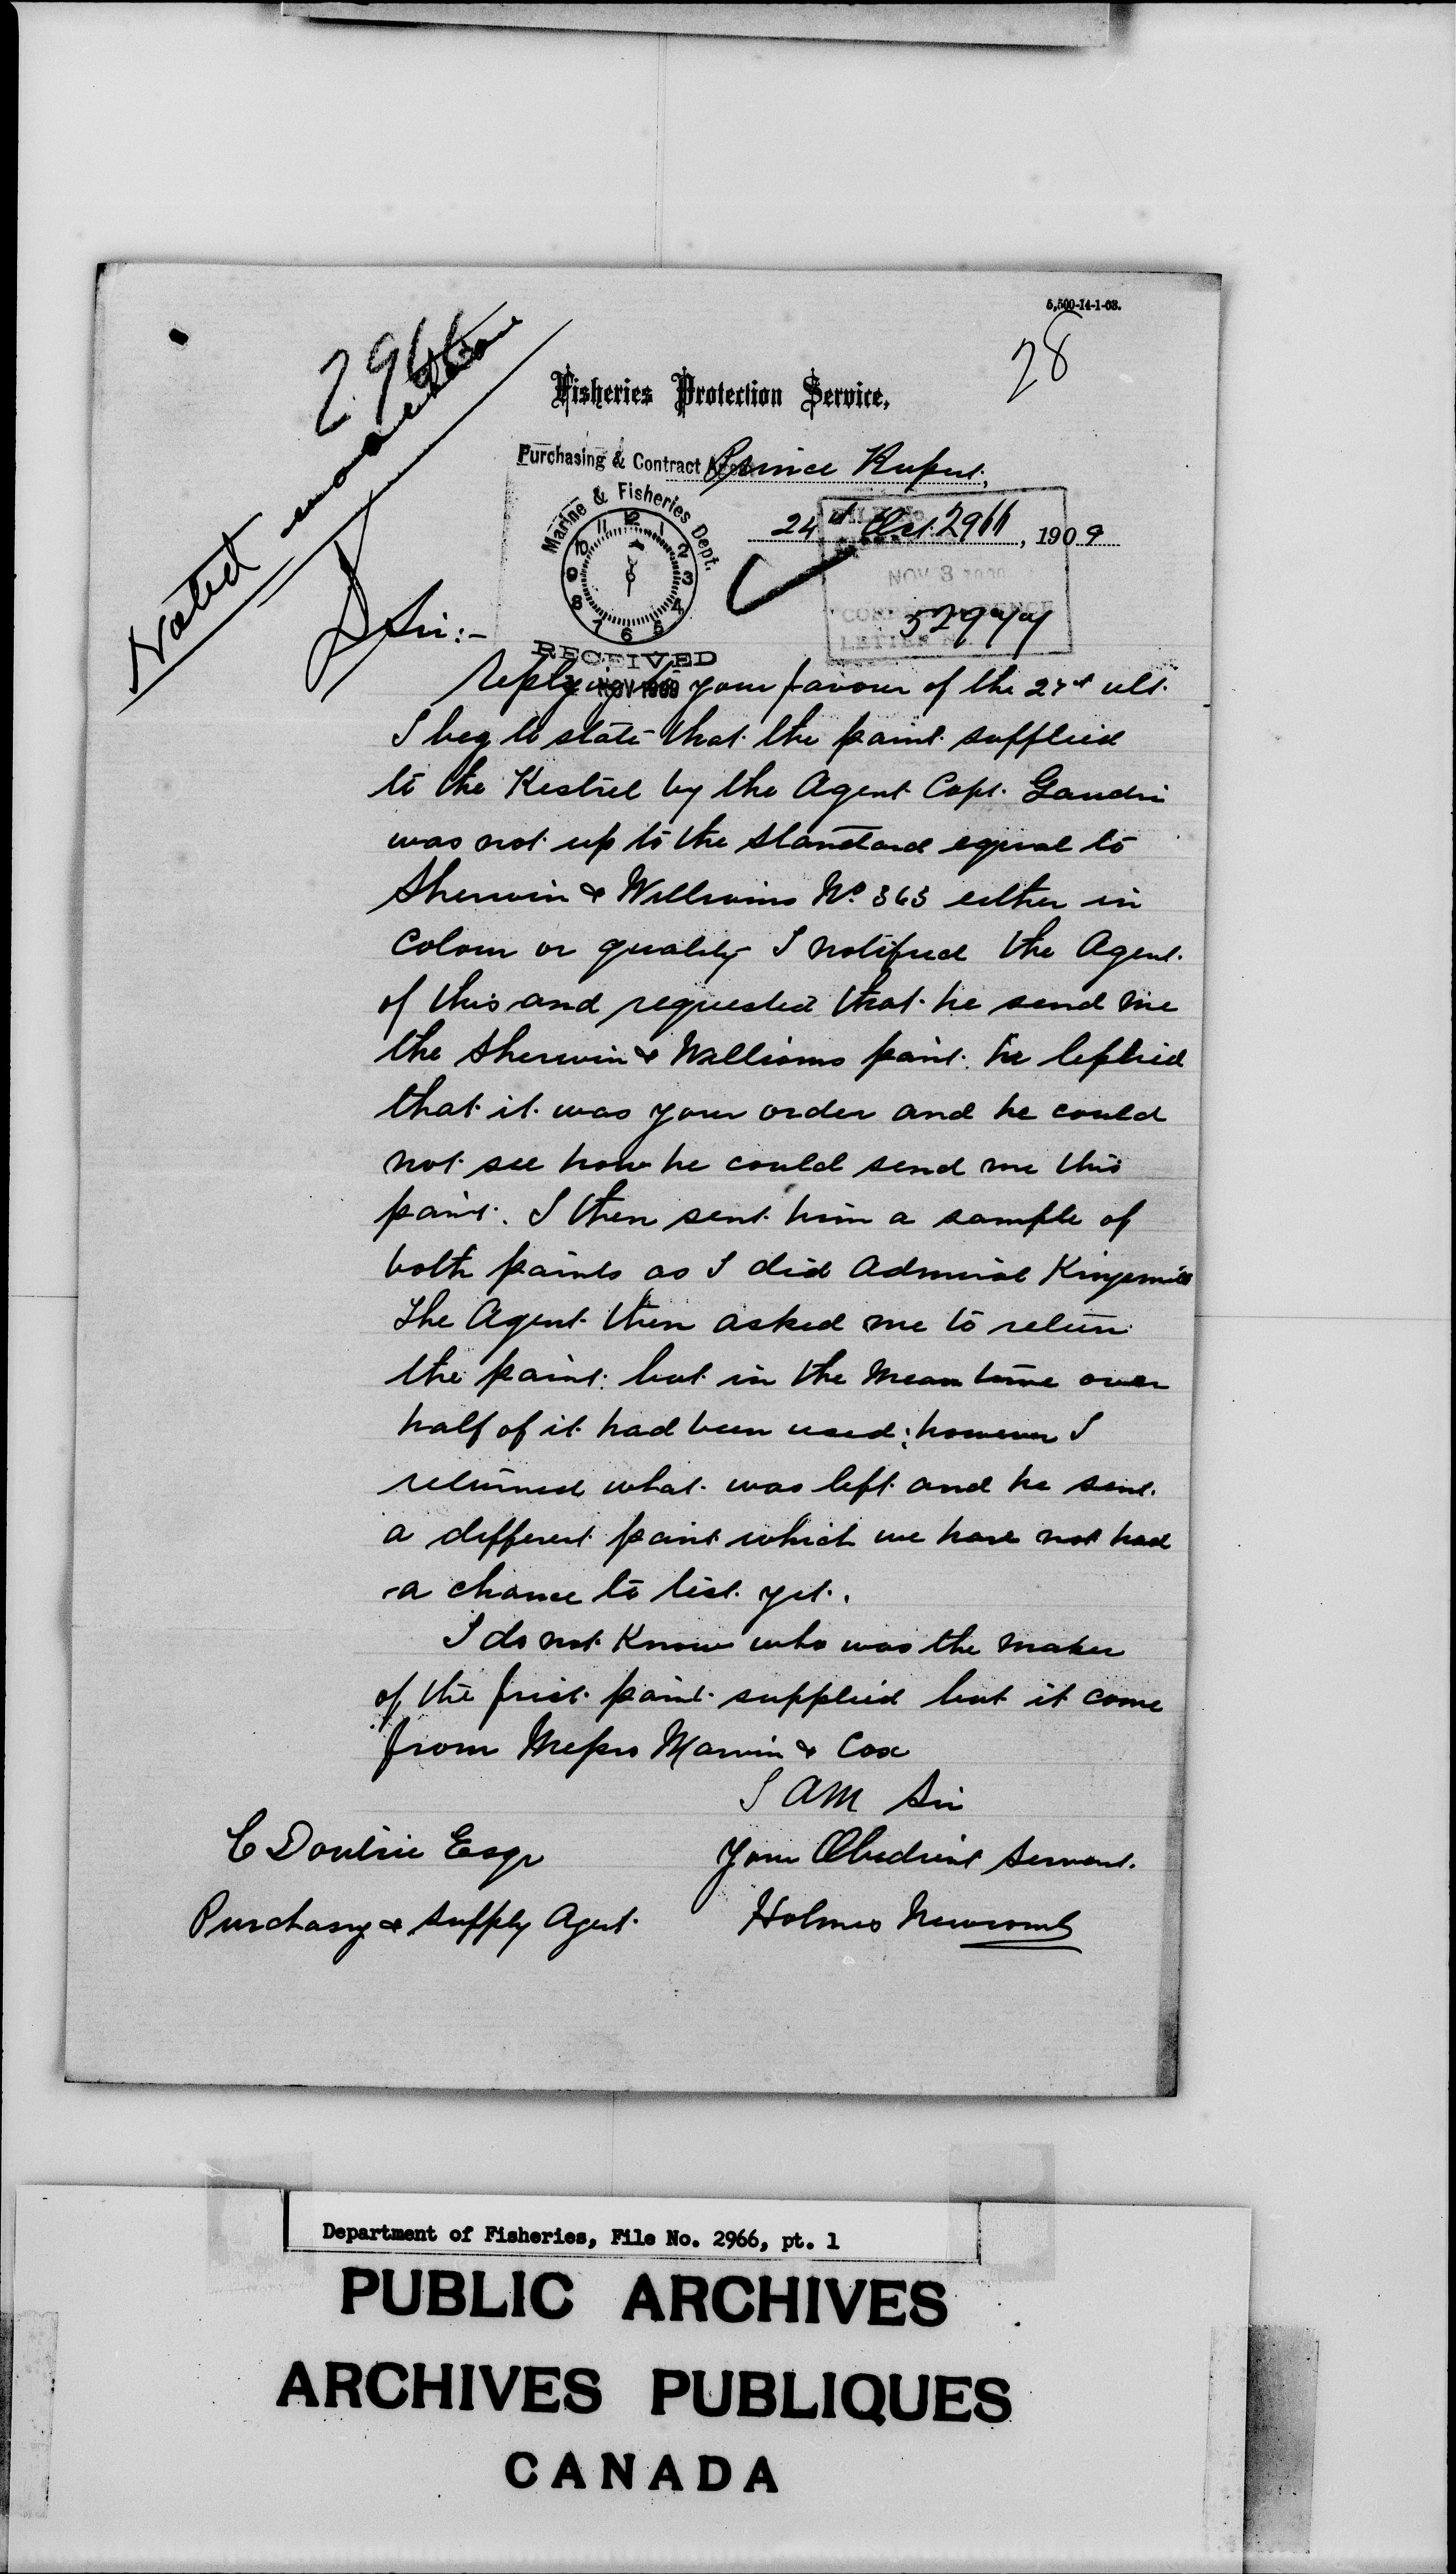 5,500-14-1-08.
28
2966
Noted
Fisheries Protection Service,
Purchasing & Contract
Prince Rupert,
Marine & Fisheries Dept.
24th Oct. 2966, 1909
NOV 3
52944
RECEIVED
NOV 1909
D Sir:-
Replying to your favour of the 27th ult.
I beg to state that the paint supplied
to the Kestrel by the Agent Capt. Gaudin
was not up to the standard equal to
Sherwin & Williams No. 363 either in
colour or quality I notified the Agent
of this and requested that he send me
the Sherwin & Williams paint. he replied
that it was your order and he could
not see how he could send me this
paint. I then sent him a sample of
both paints as I did Admiral Kingsmill
The Agent then asked me to return
the paint but in the mean time over
half of it had been used; however I
returned what was left and he sent
a different paint which we have not had
a chance to test yet.
I do not know who was the maker
of the first paint supplied but it come
from Messrs Marvin & Cox
I am Sir
C Doutrie Esqr
Your Obedient Servant.
Purchasing & Supply Agent.
Holmes Newcomb
Department of Fisheries, File No. 2966, pt. 1
PUBLIC ARCHIVES
ARCHIVES PUBLIQUES
CANADA